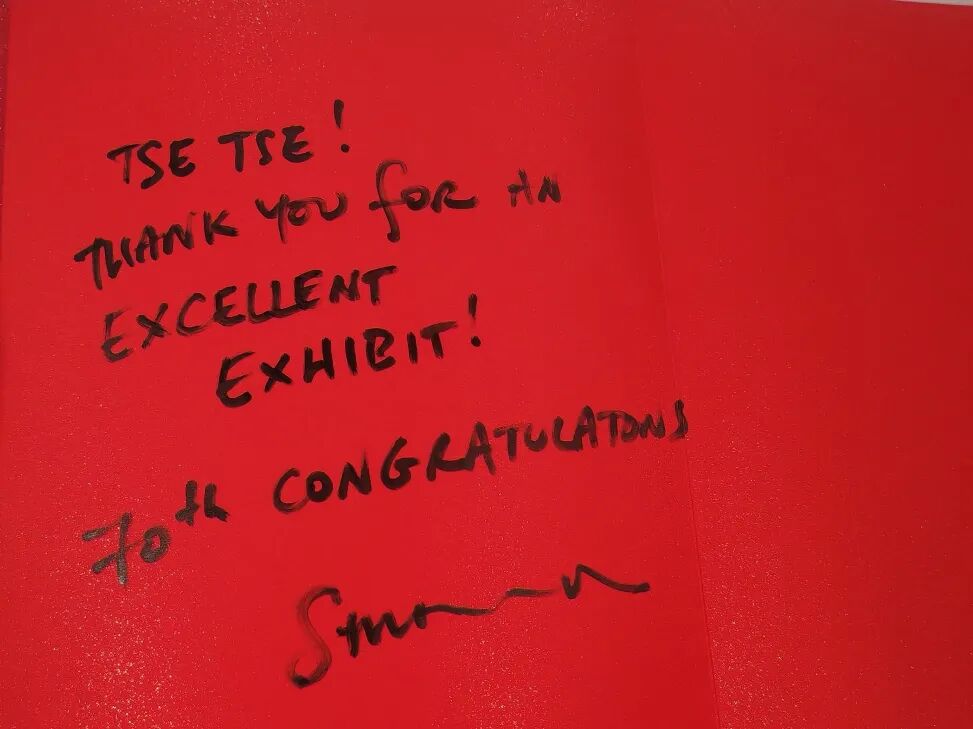 TSE TSE!
THANK YOU FOR AN
EXCELLENT
EXHIBIT!
70th CONGRATULATONS